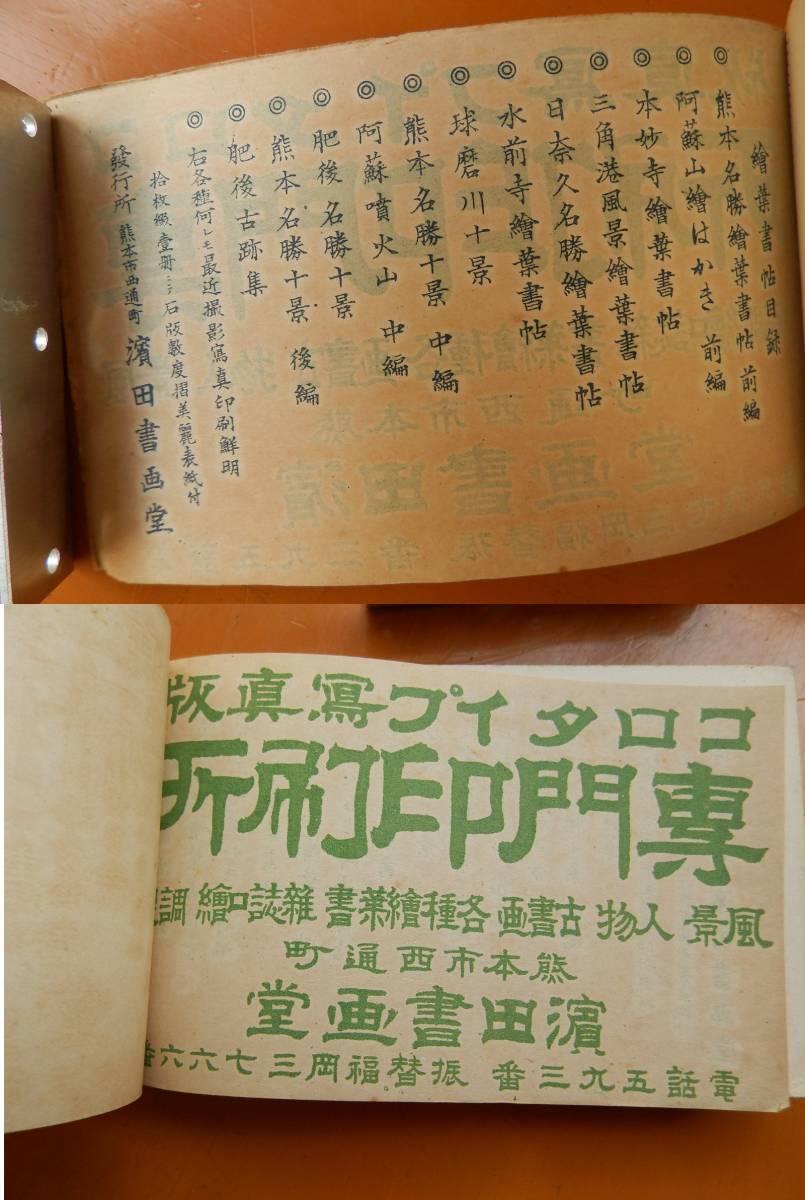 繪葉書帖目録
◎熊本名勝繪葉書帖 前編
◎阿蘇山繪はかき 前編
◎本妙寺繪葉書帖
◎三角港風景繪葉書帖
◎日奈久名勝繪葉書帖
◎水前寺繪葉書帖
◎球磨川十景
◎熊本名勝十景 中編
◎阿蘇噴火山 中編
◎肥後名勝十景
◎熊本名勝十景 後編
◎肥後古跡集
◎右各種何レモ最近撮影寫真印刷鮮明
拾枚綴壹冊ニシ石版數度摺美麗表紙付
發行所 熊本市西通町 濱田書画堂
コロタイプ寫真版
專門印刷所
風景 人物 古書画 各種繪葉書 雜誌口繪 調
熊本市西通町
濱田書画堂
電話五九三番 振替福岡三七六六番